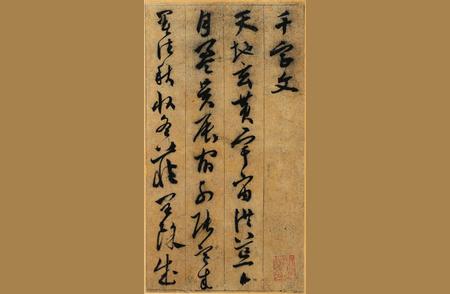 千字文
天地玄黃宇宙洪荒日
月盈昃辰宿列張寒来
暑往秋收冬藏閏餘成